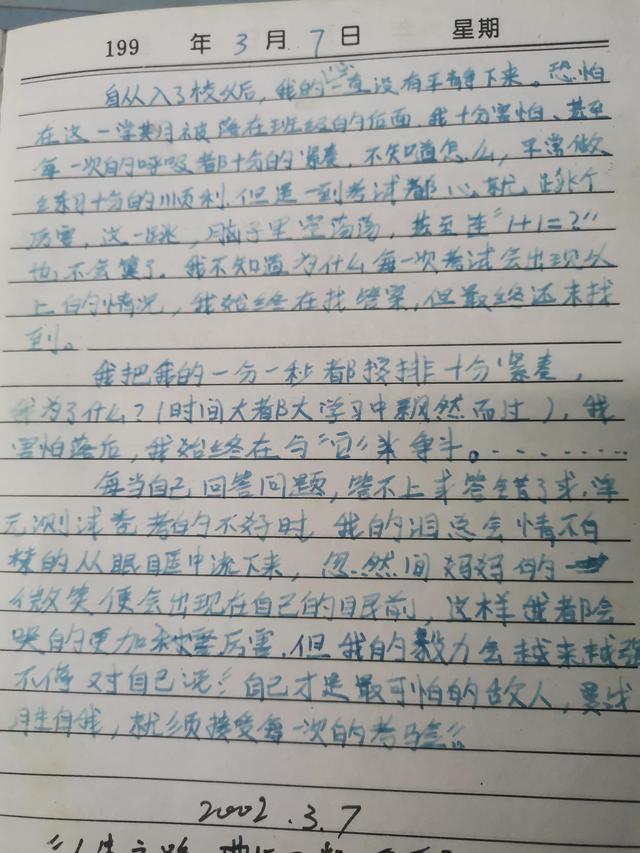 199 年 3 月 7 日 星期
自从入了校以后，我的心一直没有平静下来。恐怕
在这一学期被落在班级的后面，我十分害怕、甚至
每一次的呼吸都十分的紧奏，不知道怎么，平常做
练习十分的顺利，但是一到考试都心就跳个
厉害，这一跳，脑子里空荡荡，甚至连“1+1=?”
也不会算了。我不知道为什么每一次考试会出现以
上的情况，我始终在找答案，但最终还未找
到。
我把我的一分一秒都按排十分紧奏，
我为了什么？（时间大都大学习中飘然而过），我
害怕落后，我始终在与“它”来争斗。........
每当自己回答问题，答不上或答错了或，单
元测试卷考的不好时，我的泪总会情不自
禁的从眼眶中流下来，忽然间妈妈的
微笑便会出现在自己的眼前，这样我都会
哭的更加厉害，但我的毅力会越来越强
不停对自己说：“自己才是最可怕的敌人，要战
胜自我，就须接受每一次的考验”。
2002.3.7